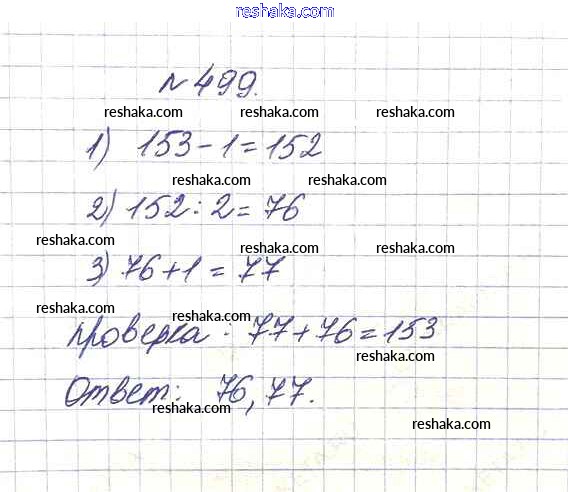 reshaka.com
№499.
reshaka.com reshaka.com
1) 153-1=152
reshaka.com reshaka.com
2) 152:2=76
reshaka.com reshaka.com
3) 76+1=77
reshaka.com reshaka.com
проверка: 77+76=153
reshaka.com
Ответ: 76,77.
reshaka.com
reshaka.com